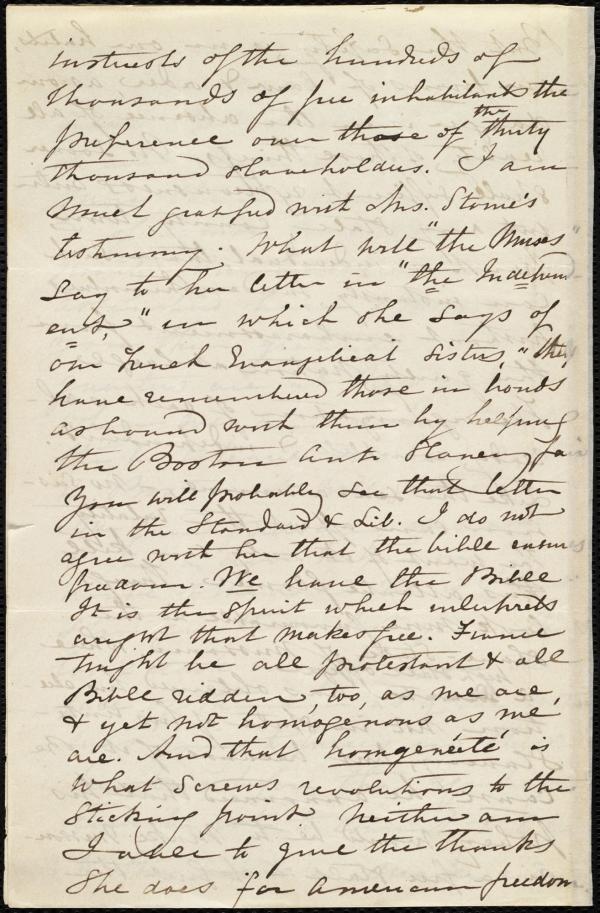 interests of the hundreds of
thousands of free inhabitants the
preference over those of the thirty
thousand slaveholders. I am
much gratified with Mrs. Stowe's
testimony. What will "the Muses"
say to her letter in "the Independ-
ent," in which she says of
our French Evangelical sisters, "they
have remembered those in bonds
as bound with them by helping
the Boston Anti Slavery fair
You will probably see that letter
in the Standard & Lib. I do not
agree with her that the bible ensures
freedom. We have the Bible
It is the spirit which interprets
aright that makes free. France
might be all protestant & all
Bible ridden, too, as we are,
& yet not homogenous as we
are. And that homgenéité is
what screws revolutions to the
sticking point neither am
I able to give the thanks
she does for American freedom